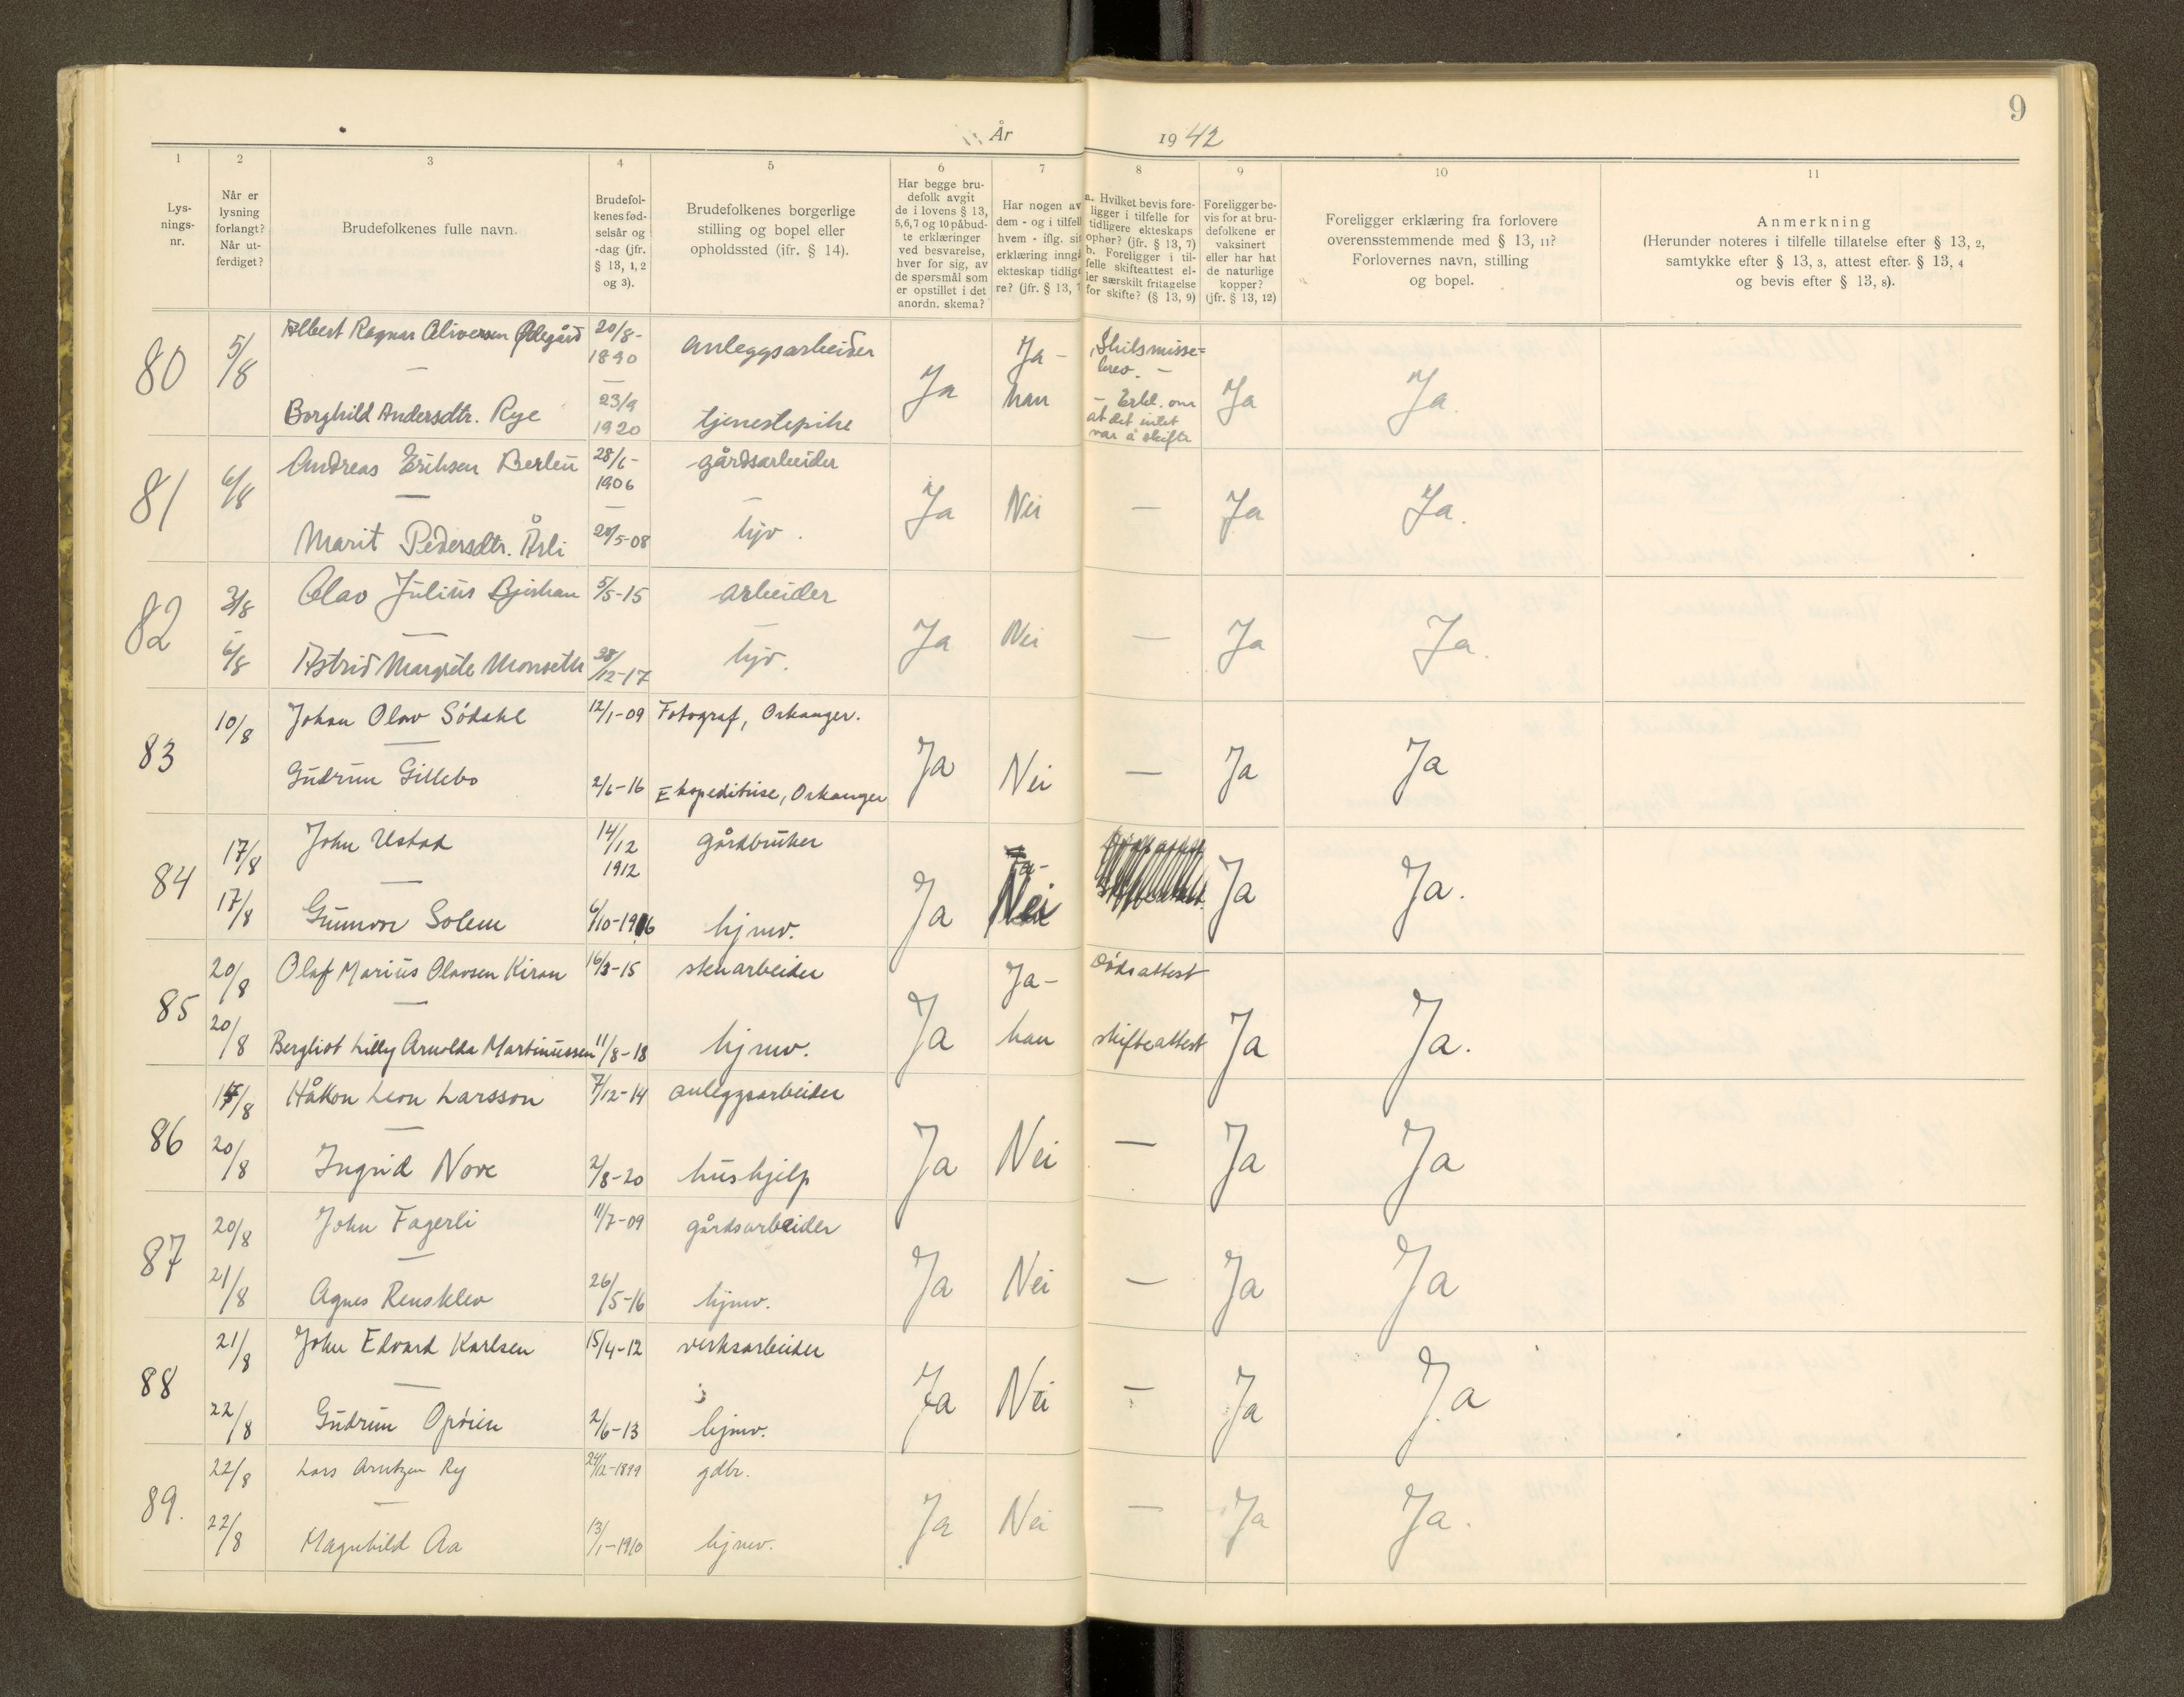 9
År 1942
1 2 3 4 5 6 7 8 9 10 11
Lys-
nings-
nr.
Når er
lysning
forlangt?
Når ut-
ferdiget?
Brudefolkenes fulle navn.
Brudefol-
kenes fød-
selsår og
-dag (jfr.
§ 13, 1, 2
og 3).
Brudefolkenes borgerlige
stilling og bopel eller
opholdssted (jfr. § 14).
Har begge bru-
defolk avgit
de i lovens § 13,
5,6,7 og 10 påbud-
te erklæringer
ved besvarelse,
hver for sig, av
de spørsmål som
er opstillet i det
anordn. skema?
Har nogen av
dem - og i tilfel
hvem - iflg. si
erklæring inng
ekteskap tidlig
re? (jfr. § 13,
a. Hvilket bevis fore-
ligger i tilfelle for
tidligere ekteskaps
ophør? (jfr. § 13, 7)
b. Foreligger i til-
felle skifteattest el-
ler særskilt fritagelse
for skifte? (§ 13, 9)
Foreligger be-
vis for at bru-
defolkene er
vaksinert
eller har hat
de naturlige
kopper?
(jfr. § 13, 12)
Foreligger erklæring fra forlovere
overensstemmende med § 13, 11?
Forlovernes navn, stilling
og bopel.
Anmerkning
(Herunder noteres i tilfelle tillatelse efter § 13, 2,
samtykke efter § 13, 3, attest efter § 13, 4
og bevis efter § 13, 8).
80 5/8 Albert Ragnar Oliversen Ødegård 20/8-1890 anleggsarbeider Ja Ja - han Skilsmisse=
brev. -
- Erkl. om
at det intet
var å skifte
Ja Ja.
Borghild Andersdtr. Rye 23/9 1920 tjenestepike
81 6/8 Andreas Eriksen Berlin 28/6-1906 gårdsarbeider Ja Nei — Ja Ja.
Marit Pedersdtr. Åsli 20/5-08 hjv.
82 3/8 Olav Julius 5/5-15 arbeider Ja Nei — Ja Ja.
6/8 Astrid Margrete Monseth 28/12-17 hjv.
83 10/8 Johan Olav Södahl 12/1-09 Fotograf, Orkanger. Ja Nei — Ja Ja
Gudrun Gillebo 2/6-16 Ekspeditrise, Orkanger
84 17/8 John Ustad 14/12 1912 gårdbruker Ja Nei Ja Ja.
17/8 Gunvor Solem 6/10-1916 hjmv.
85 20/8 Olaf Marius Olavsen Kiran 16/3-15 stenarbeider Ja Ja- han dödsattest
skifteattest Ja Ja.
20/8 Bergliot Lilly Arnolda Martinussen 11/8-18 hjmv.
86 17/8 Håkon Leon Larsson 7/12-14 anleggsarbeider Ja Nei — Ja Ja
20/8 Ingrid Nove 2/8-20 hushjelp
87 20/8 John Fagerli 11/7-09 gårdsarbeider Ja Nei — Ja Ja
21/8 Agnes Rensklev 26/5-16 hjmv.
88 21/8 John Edvard Karlsen 15/4-12 verksarbeider Ja Nei — Ja Ja
22/8 Gudrun Opöien 2/6-13 hjmv.
89. 22/8 Lars Arntzen Ry 24/12-1899 gdbr. Ja Nei — Ja Ja.
22/8 Magnhild Aa 13/1-1910 hjmv.